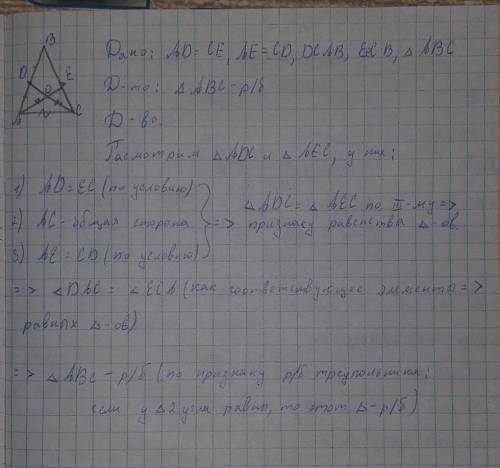 B
Дано: AD = CE, AE = CD, D∈AB, E∈B, △ABC
D
E
O
Д-ть: △ABC - р/б
A
C
Д-во:
Рассмотрим △ADC и △AEC, у них:
1) AD = EC (по условию)
△ADC = △AEC по III-му =>
2) AC - общая сторона => признаку равенства △-ов.
3) AE = CD (по условию)
=> ∠DAC = ∠ECA (как соответствующие элементы =>
равных △-ов)
=> △ABC - р/б (по признаку р/б треугольника:
если у △ 2 угла равны, то этот △ - р/б)